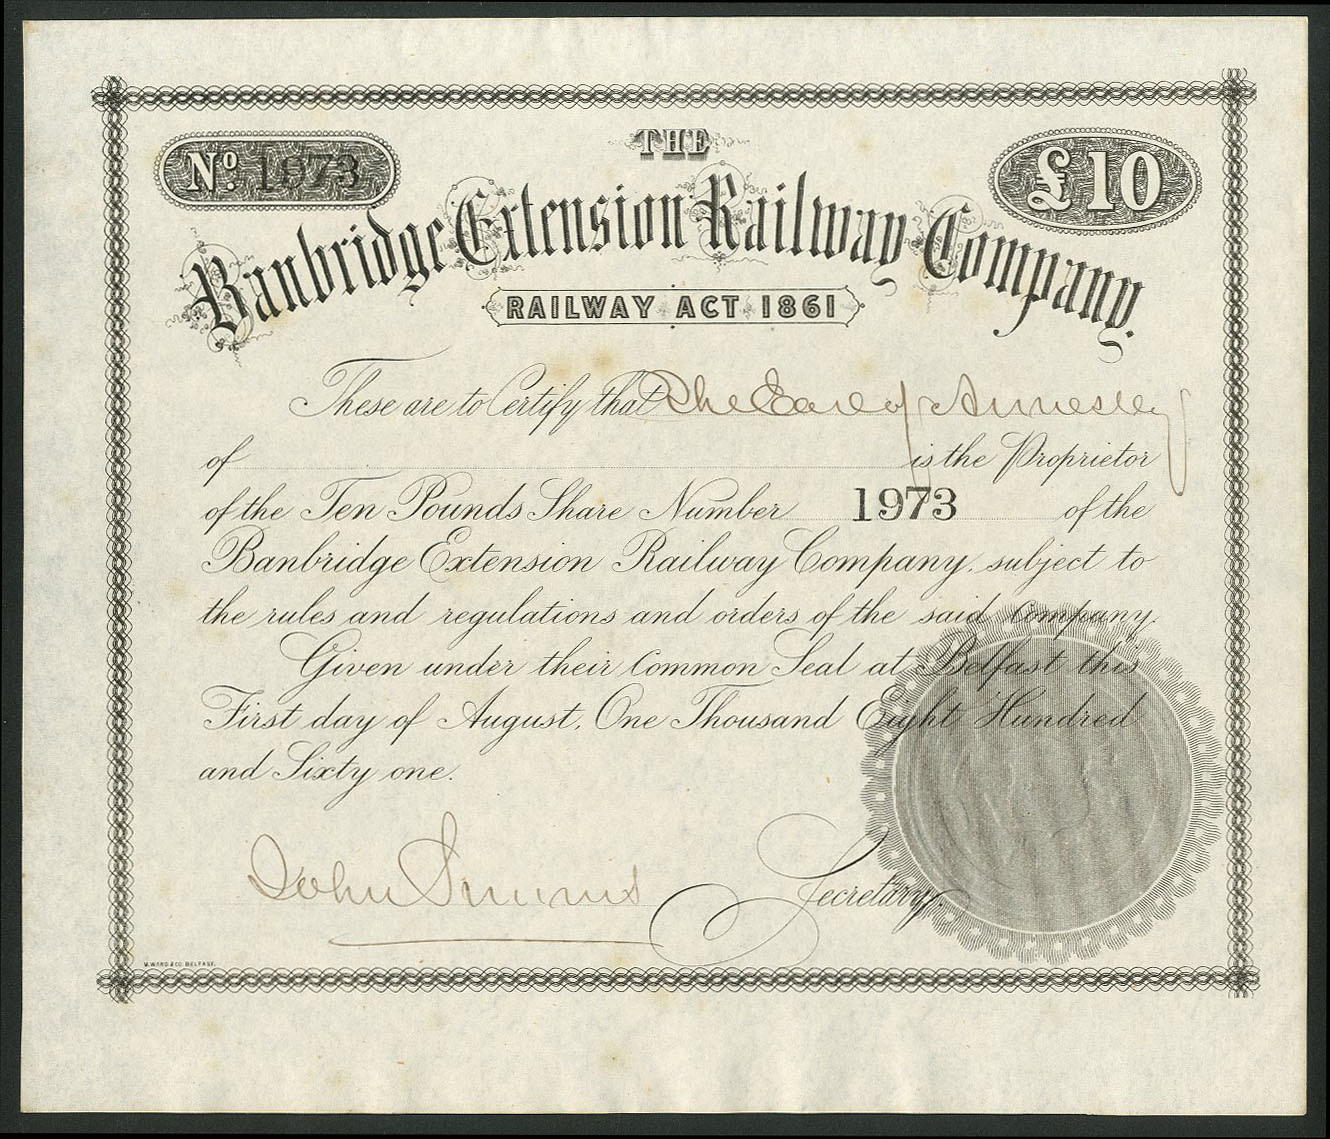 THE
No. 1973
£10
Banbridge Extension Railway Company.
RAILWAY ACT 1861
These are to Certify that The Earl of Annesley
of is the Proprietor
of the Ten Pounds Share Number 1973 of the
Banbridge Extension Railway Company, subject to
the rules and regulations and orders of the said Company.
Given under their Common Seal at Belfast this
First day of August, One Thousand Eight Hundred
and Sixty one.
John Simms Secretary.
M.WARD & CO. BELFAST.